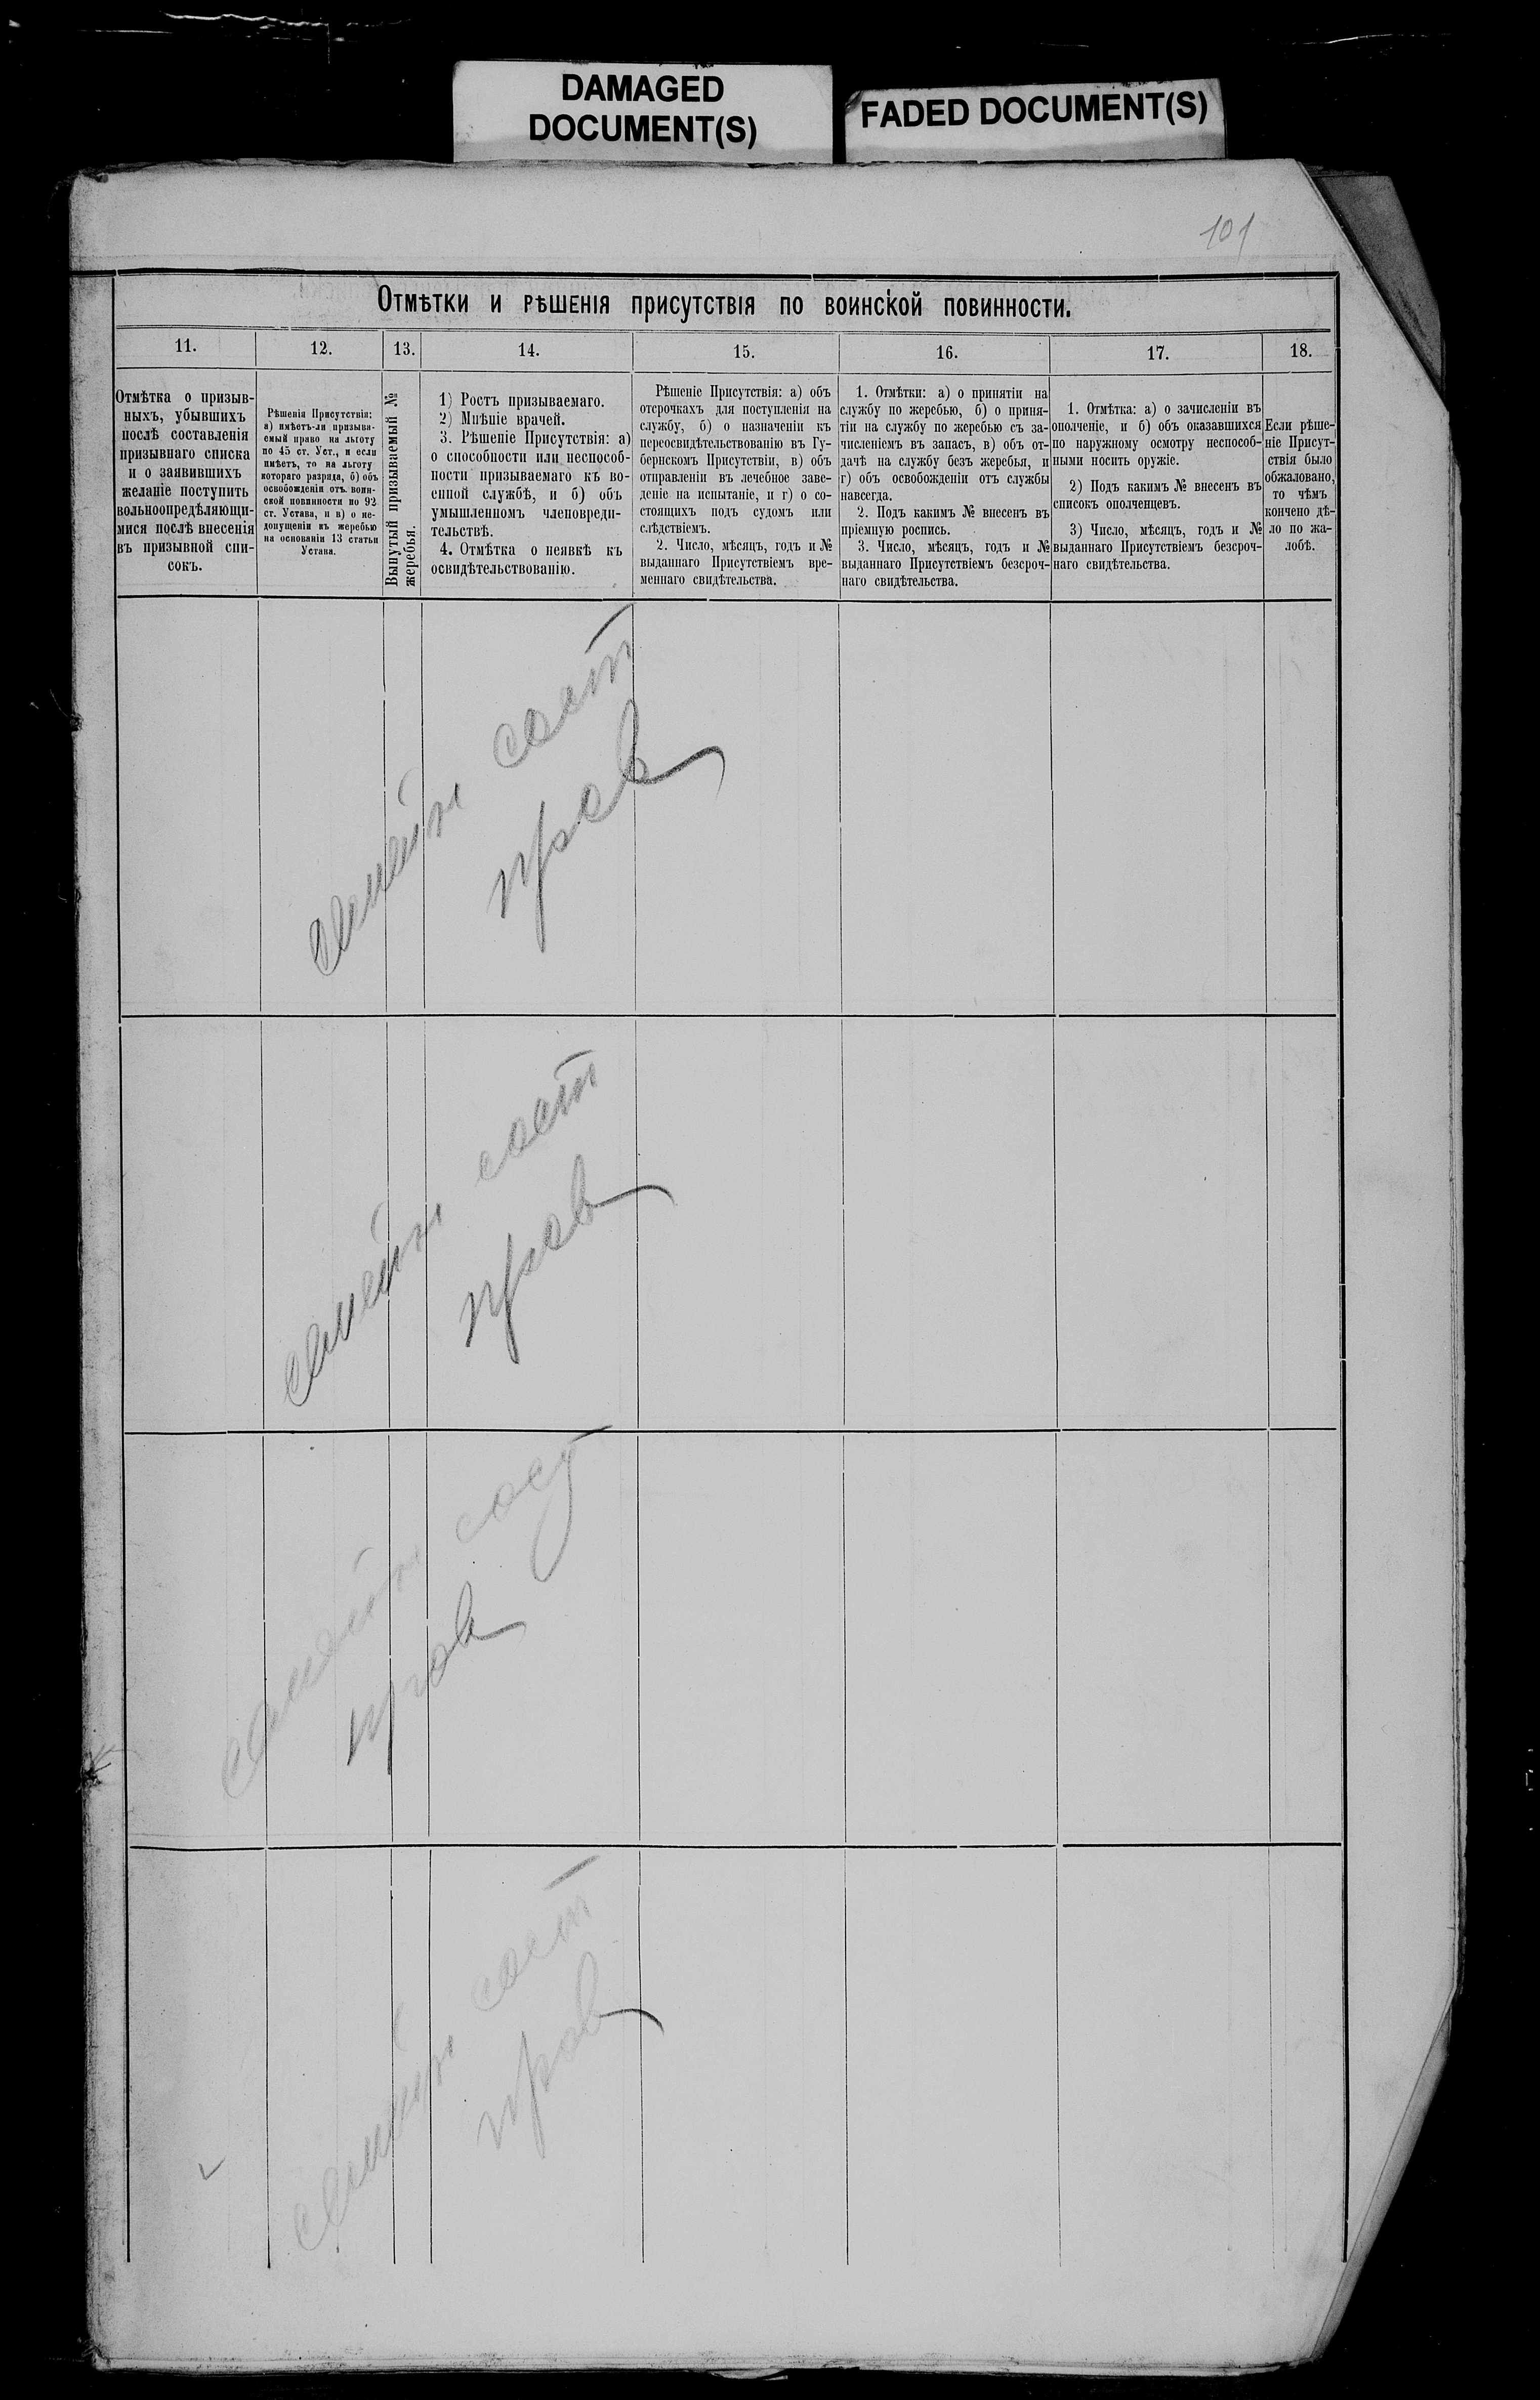 DAMAGED
DOCUMENT(S)
FADED DOCUMENT(S)
101
Отмѣтки и рѣшенія присутствія по воинской повинности.
11.
12.
13.
14.
15.
16.
17.
18.
Отмѣтка о призыв-
ныхъ, убывшихъ
послѣ составленія
призывнаго списка
и о заявившихъ
желаніе поступить
вольноопредѣляющи-
мися послѣ внесенія
въ призывной спи-
сокъ.
Рѣшенія Присутствія:
а) имѣетъ-ли призыва-
емый право на льготу
по 45 ст. Уст., и если
имѣетъ, то на льготу
котораго разряда, б) объ
освобожденіи отъ воин-
ской повинности по 92
ст. Устава, и в) о не-
допущеніи къ жеребью
на основаніи 13 статьи
Устава.
Вынутый призываемый №
жеребья.
1) Ростъ призываемаго.
2) Мнѣніе врачей.
3. Рѣшеніе Присутствія: а)
о способности или неспособ-
ности призываемаго къ во-
енной службѣ, и б) объ
умышленномъ членовреди-
тельствѣ.
4. Отмѣтка о неявкѣ къ
освидѣтельствованію.
Рѣшеніе Присутствія: а) объ
отсрочкахъ для поступленія на
службу, б) о назначеніи къ
переосвидѣтельствованію въ Гу-
бернскомъ Присутствіи, в) объ
отправленіи въ лечебное заве-
деніе на испытаніе, и г) о со-
стоящихъ подъ судомъ или
слѣдствіемъ.
2. Число, мѣсяцъ, годъ и №
выданнаго Присутствіемъ вре-
меннаго свидѣтельства.
1. Отмѣтки: а) о принятіи на
службу по жеребью, б) о приня-
тіи на службу по жеребью съ за-
численіемъ въ запасъ, в) объ от-
дачѣ на службу безъ жеребья, и
г) объ освобожденіи отъ службы
навсегда.
2. Подъ какимъ № внесенъ въ
пріемную роспись.
3. Число, мѣсяцъ, годъ и №
выданнаго Присутствіемъ безсроч-
наго свидѣтельства.
1. Отмѣтка: а) о зачисленіи въ
ополченіе, и б) объ оказавшихся
по наружному осмотру неспособ-
ными носить оружіе.
2) Подъ какимъ № внесенъ въ
списокъ ополченцевъ.
3) Число, мѣсяцъ, годъ и №
выданнаго Присутствіемъ безсроч-
наго свидѣтельства.
Если рѣше-
ніе Присут-
ствія было
обжаловано,
то чѣмъ
кончено дѣ-
ло по жа-
лобѣ.
семейн сост
прав
семейн сост
прав
семейн сост
прав
семейн сост
прав